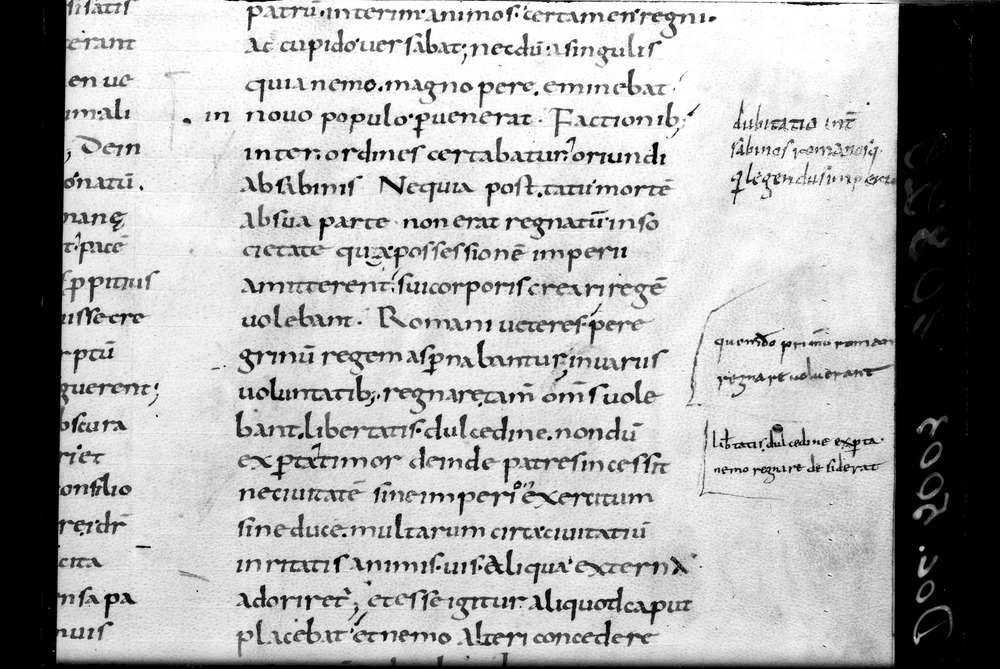 sisatis
terant
en ue
im ali
, Dein
onatū.
nanę
t pacē
uissecre
rptū
guerent;
bscura
riet
onsilio
cita
nsa pa
nuis
patrū·interim·animos·certamen regni·
ac cupido uersabat; necdū a singulis
quia nemo. magno pere. eminebat
in nouo populo puenerat · Factionib;
inter ordines certabatur; oriundi
absabinis Nequia post.tatii mortē
absua parte non erat regnatū inso
cietate qua possessionē imperii
amitterent. sui corporis creari regē
uolebant. Romani ueteres pere
grinū regem aspnabantur; inuariis
uoluntatib;. regnare tam̄ om̄s uole
bant. libertatis dulcedine. nondū
expta timor deinde patres incessit
neciuitatē sine imperio exercitum
sine duce. multarum circa ciuitatiū
inritatis animis. uis aliqua externa
adoriret; et esse igitur aliquod caput
placebat et nemo alteri concedere
dubitatio int̄
sabinos romanosq
q legendus
quem̄do primū roman
regnare uoluerant
libtatis dulcedine expta·
nemo regnare desiderat